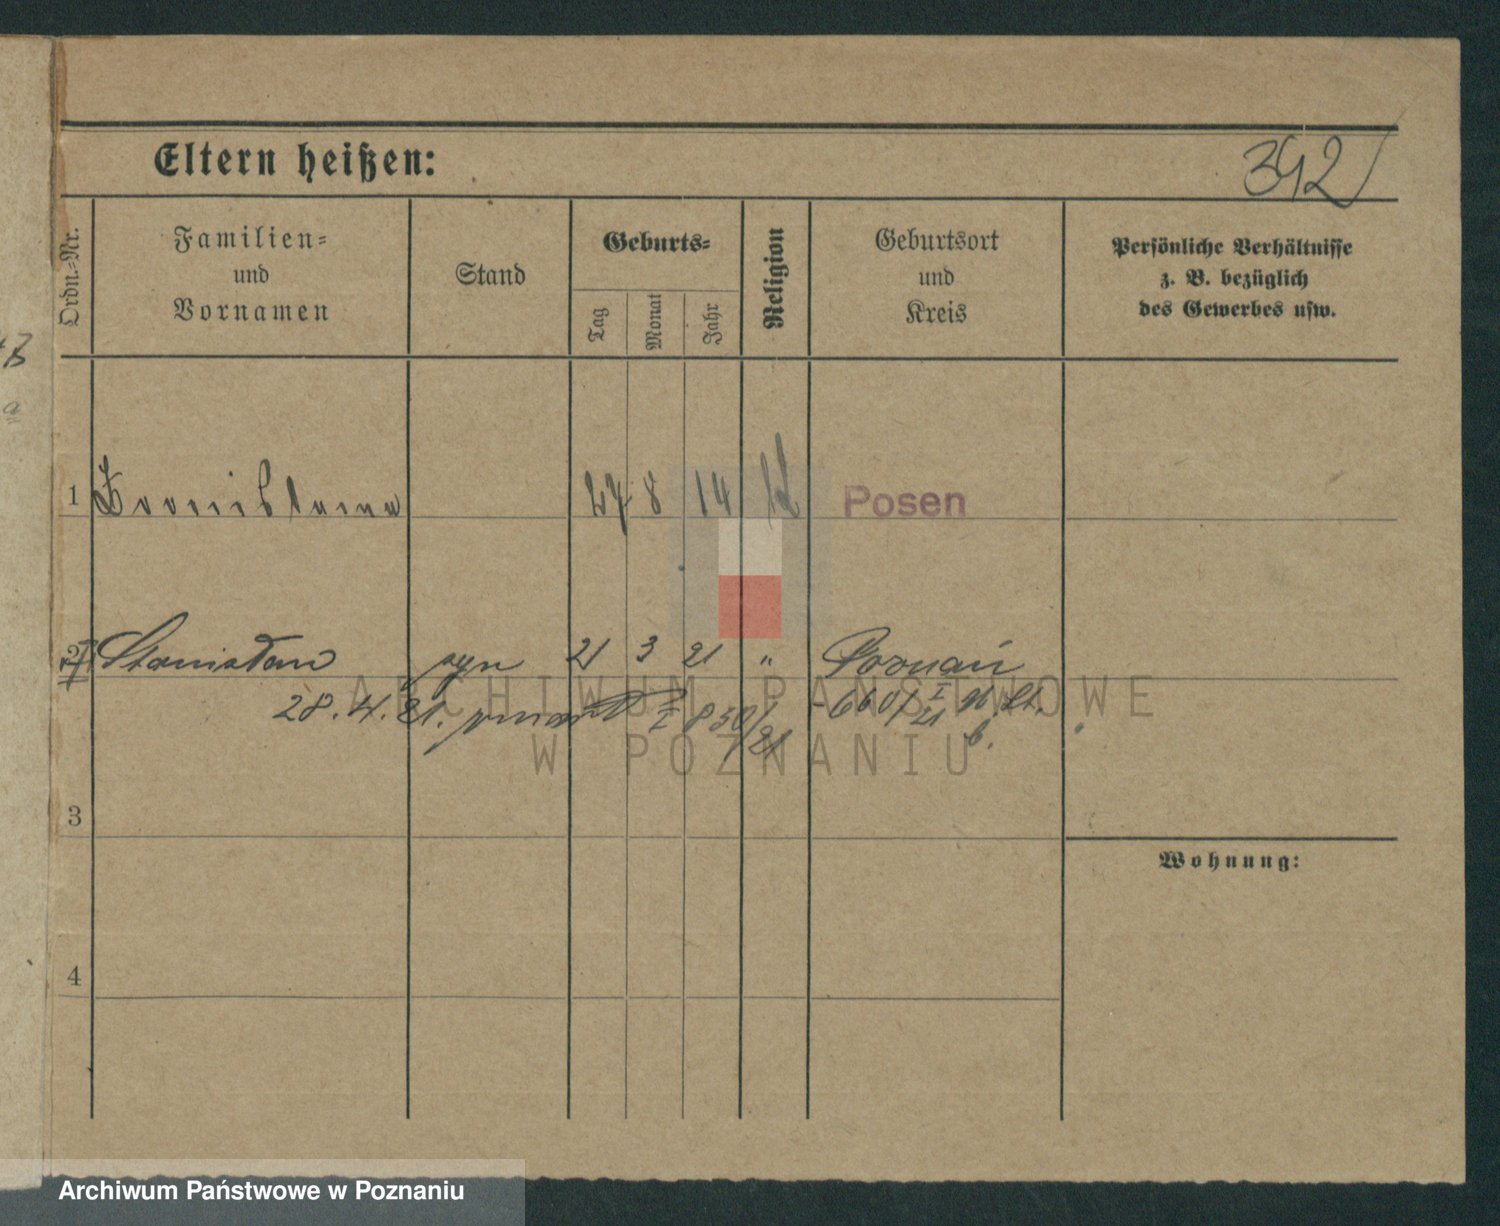 Eltern heißen:
392
Ordn.-Nr.
Familien-
und
Vornamen
Stand
Geburts-
Tag
Monat
Jahr
Religion
Geburtsort
und
Kreis
Persönliche Verhältnisse
z. B. bezüglich
des Gewerbes usw.
1 Bronislawa 27 8 14 Posen
2 Stanisław syn 21 3 21 " Poznań
28.4.21. zmarł I 850/21 660/21 I
3
Wohnung:
4
ARCHIWUM PAŃSTWOWE
W POZNANIU
Archiwum Państwowe w Poznaniu